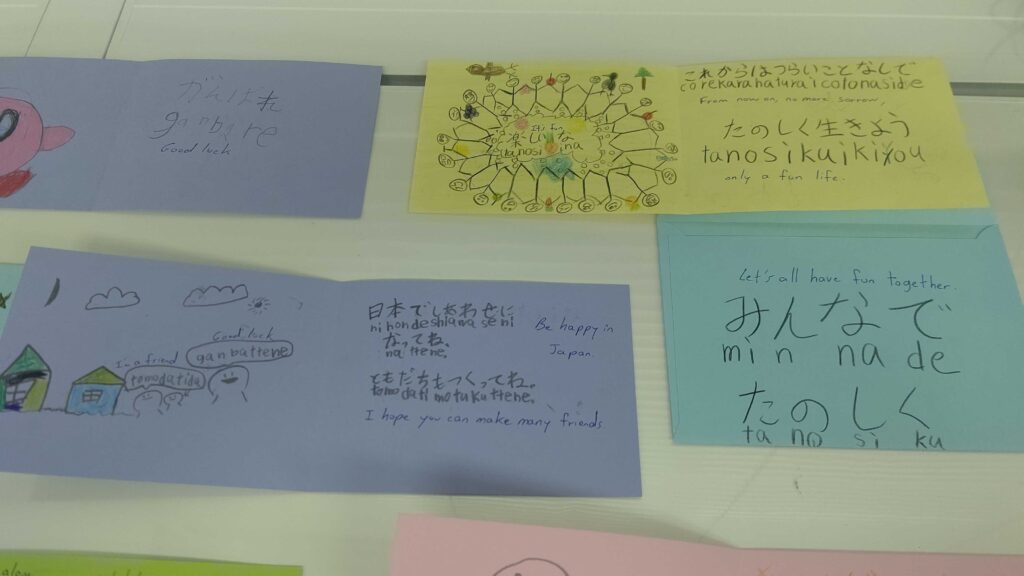 がんばれ
ganbare
Good luck
It's fun
楽しいな
tanosiina
これからはつらいことなしで
corekarahaturaicotonaside
From now on, no more sorrow,
たのしく生きよう
tanosikuikiyou
only a fun life.
Good luck
ganbattene
I'm a friend
tomodatida
日本でしあわせに
nihondeshiawaseni
なってね。
nattene.
Be happy in
Japan.
ともだちもつくってね。
tomodatimotukuttene.
I hope you can make many friends.
Let's all have fun together.
みんなで
min na de
たのしく
ta no si ku